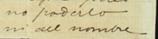 no poderlo
ni del nombre